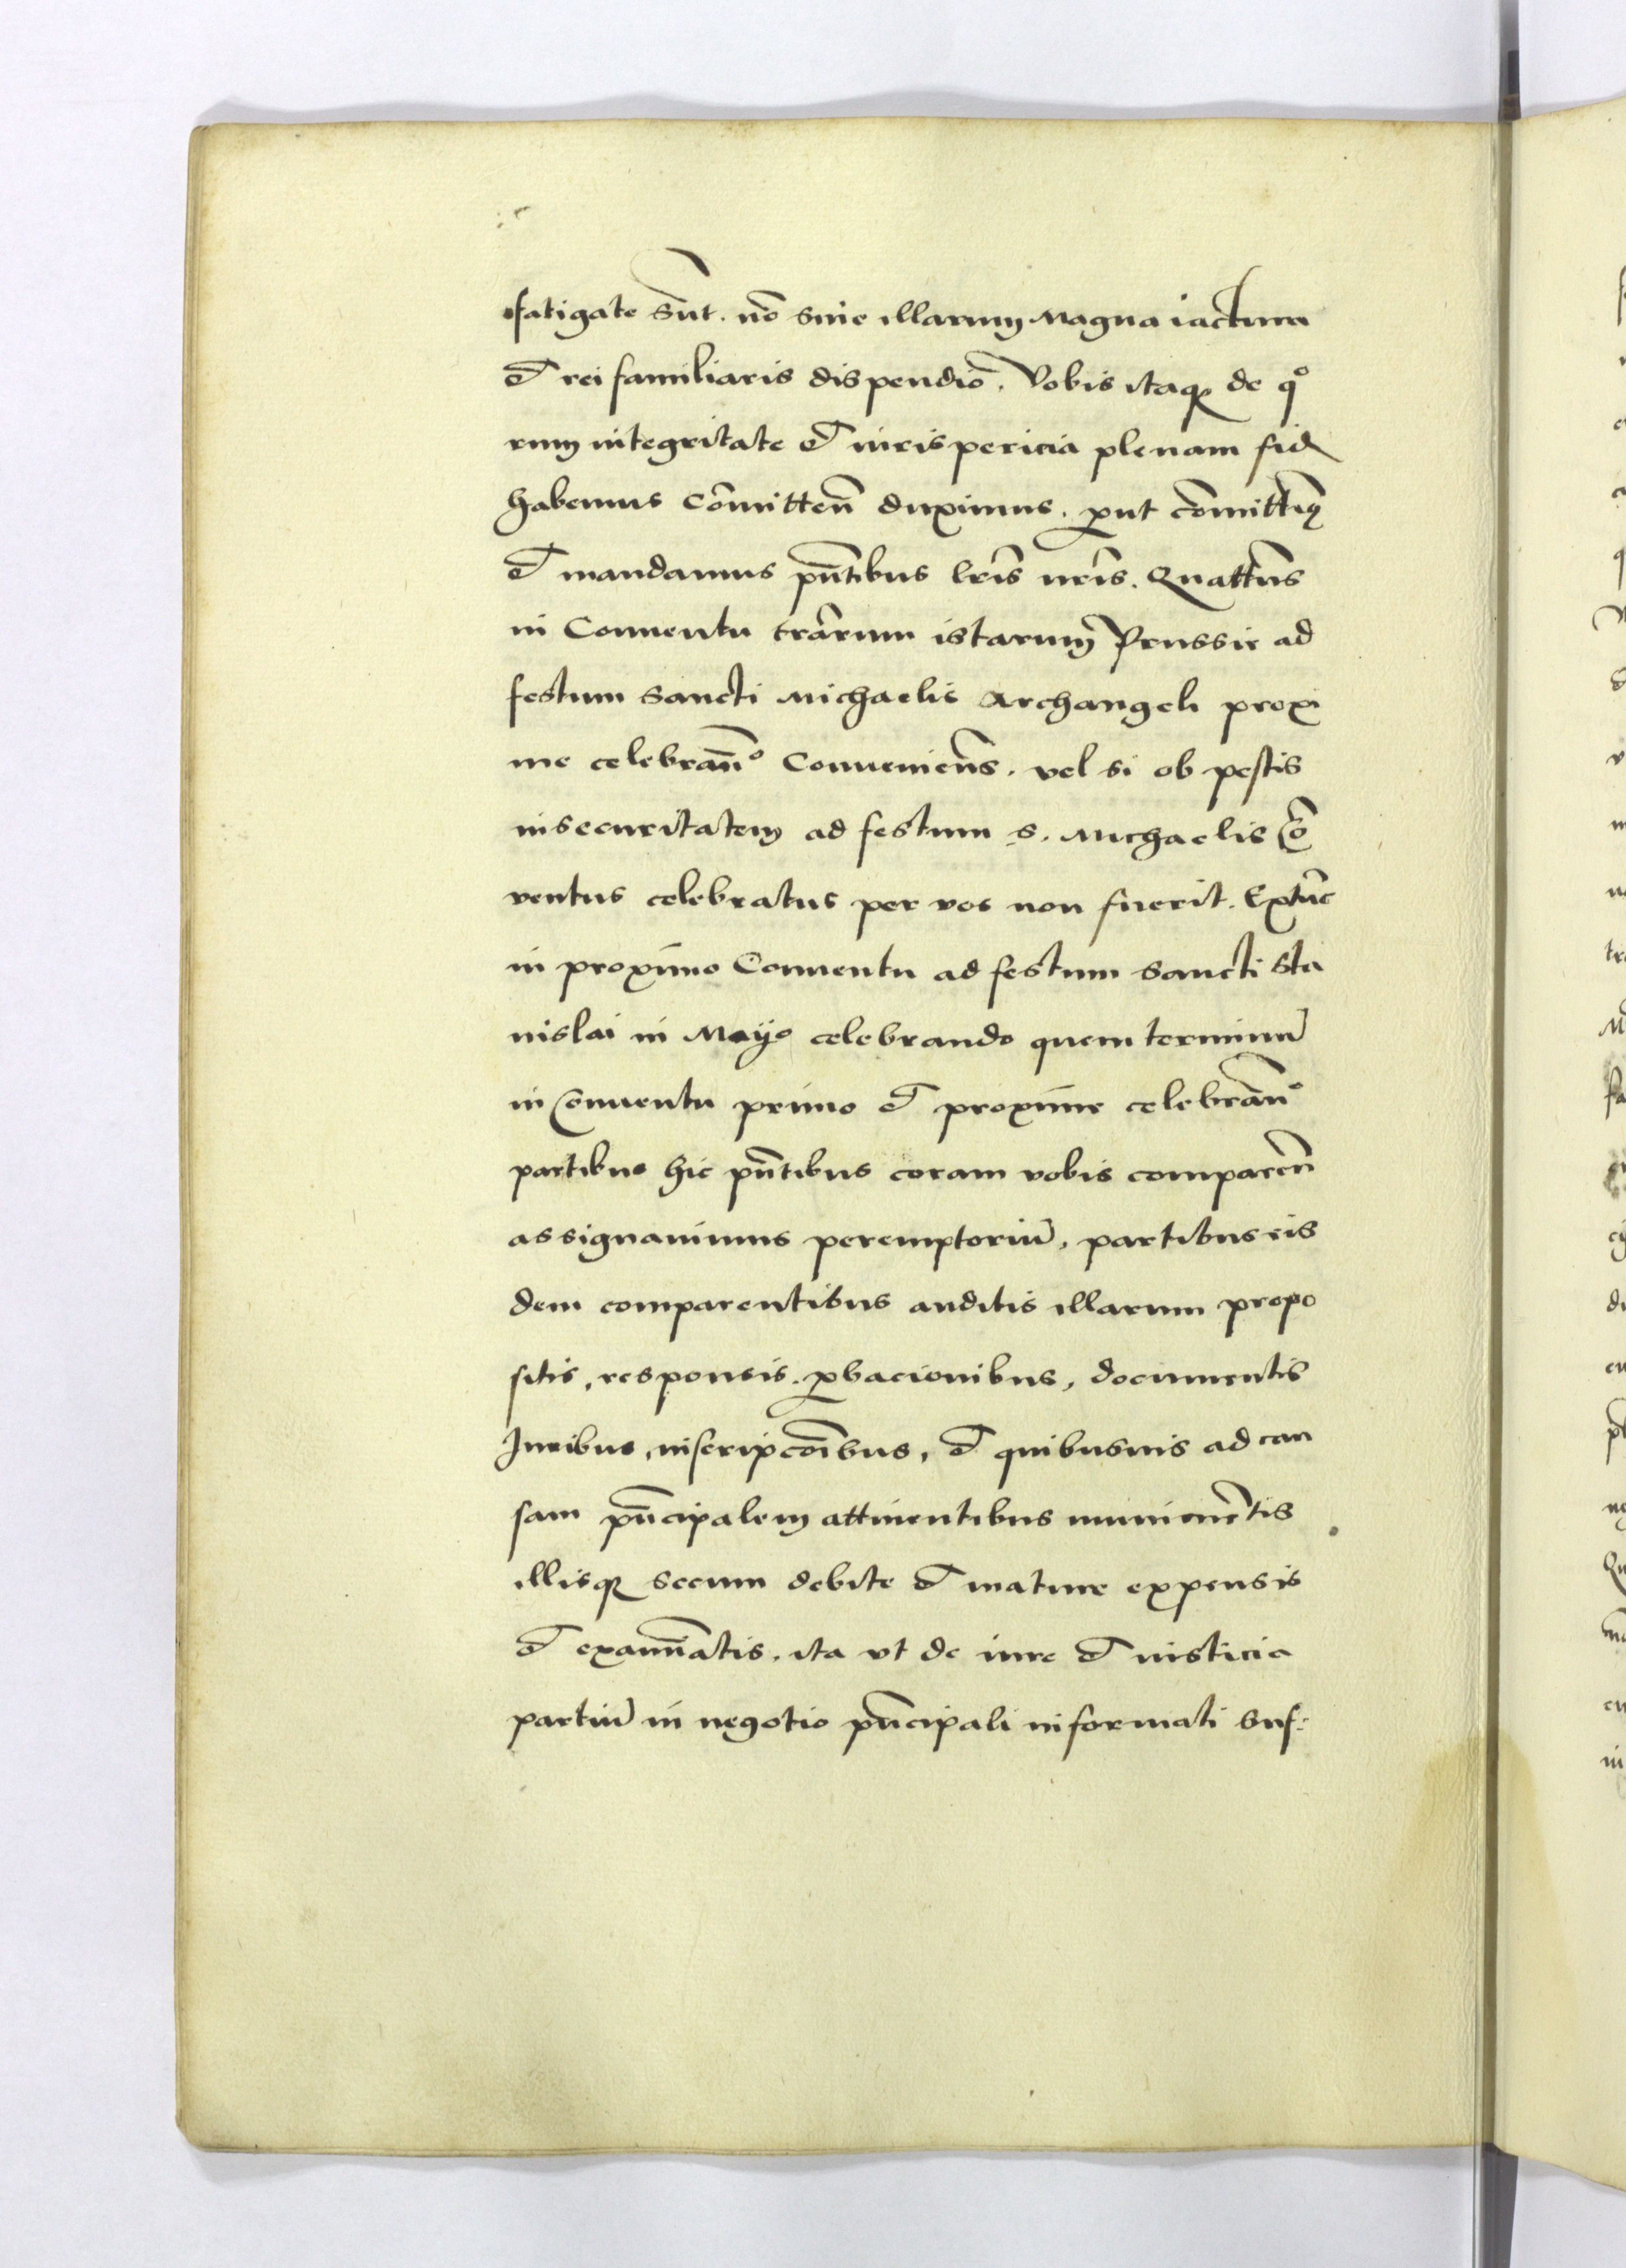 fatigate su̅t. no̅ sine illarum Magna iactura
et rei familiaris dispendio. Vobis itaqꝫ de qͦ
rum integritate et iuris pericia plenam fid
habemus Co̅mitten̅ duximus. ꝓut co̅mittim̅
et mandamus pn̅tibus lr̅is nr̅is. Quatt̅ns
in Conuentu tr̅arum istarum Prussie ad
festum Sancti Michaelis Archangeli proxi
me celebran̅ͦ Conuenien̅s. vel si ob pestis
insecuritatem ad festum S. Michaelis Co̅
ventus celebratus per vos non fuerit. Extu̅c
in proximo Conuentu ad festum Sancti Sta
nislai in Mayͦ celebrando quem terminu̅
in Conuentu primo et proxime celebran̅ͦ
partibus hic pn̅tibus coram vobis comparen̅
assignauimus peremptoriu̅, partibus eis
dem comparentibus auditis illarum propo
sitis, responsis. ꝓbacionibus, documentis
Iuribus, inscripco̅ibus, et quibusuis ad cau
sam pn̅cipalem attinentibus munime̅tis
illisqꝫ secum debite et mature expensis
et exami̅atis. ita vt de iure et iusticia
partiu̅ in negotio pn̅cipali informati suf: